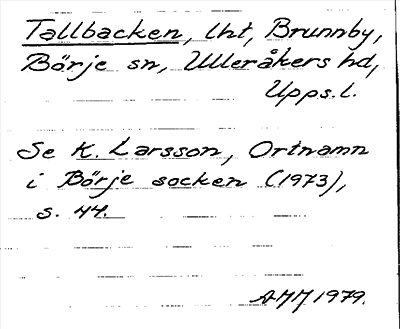 Tallbacken, lht, Brunnby,
Börje sn, Ulleråkers hd,
Upps.l.
Se K. Larsson, Ortnamn
i Börje socken (1973),
s. 44.
AMM 1979.